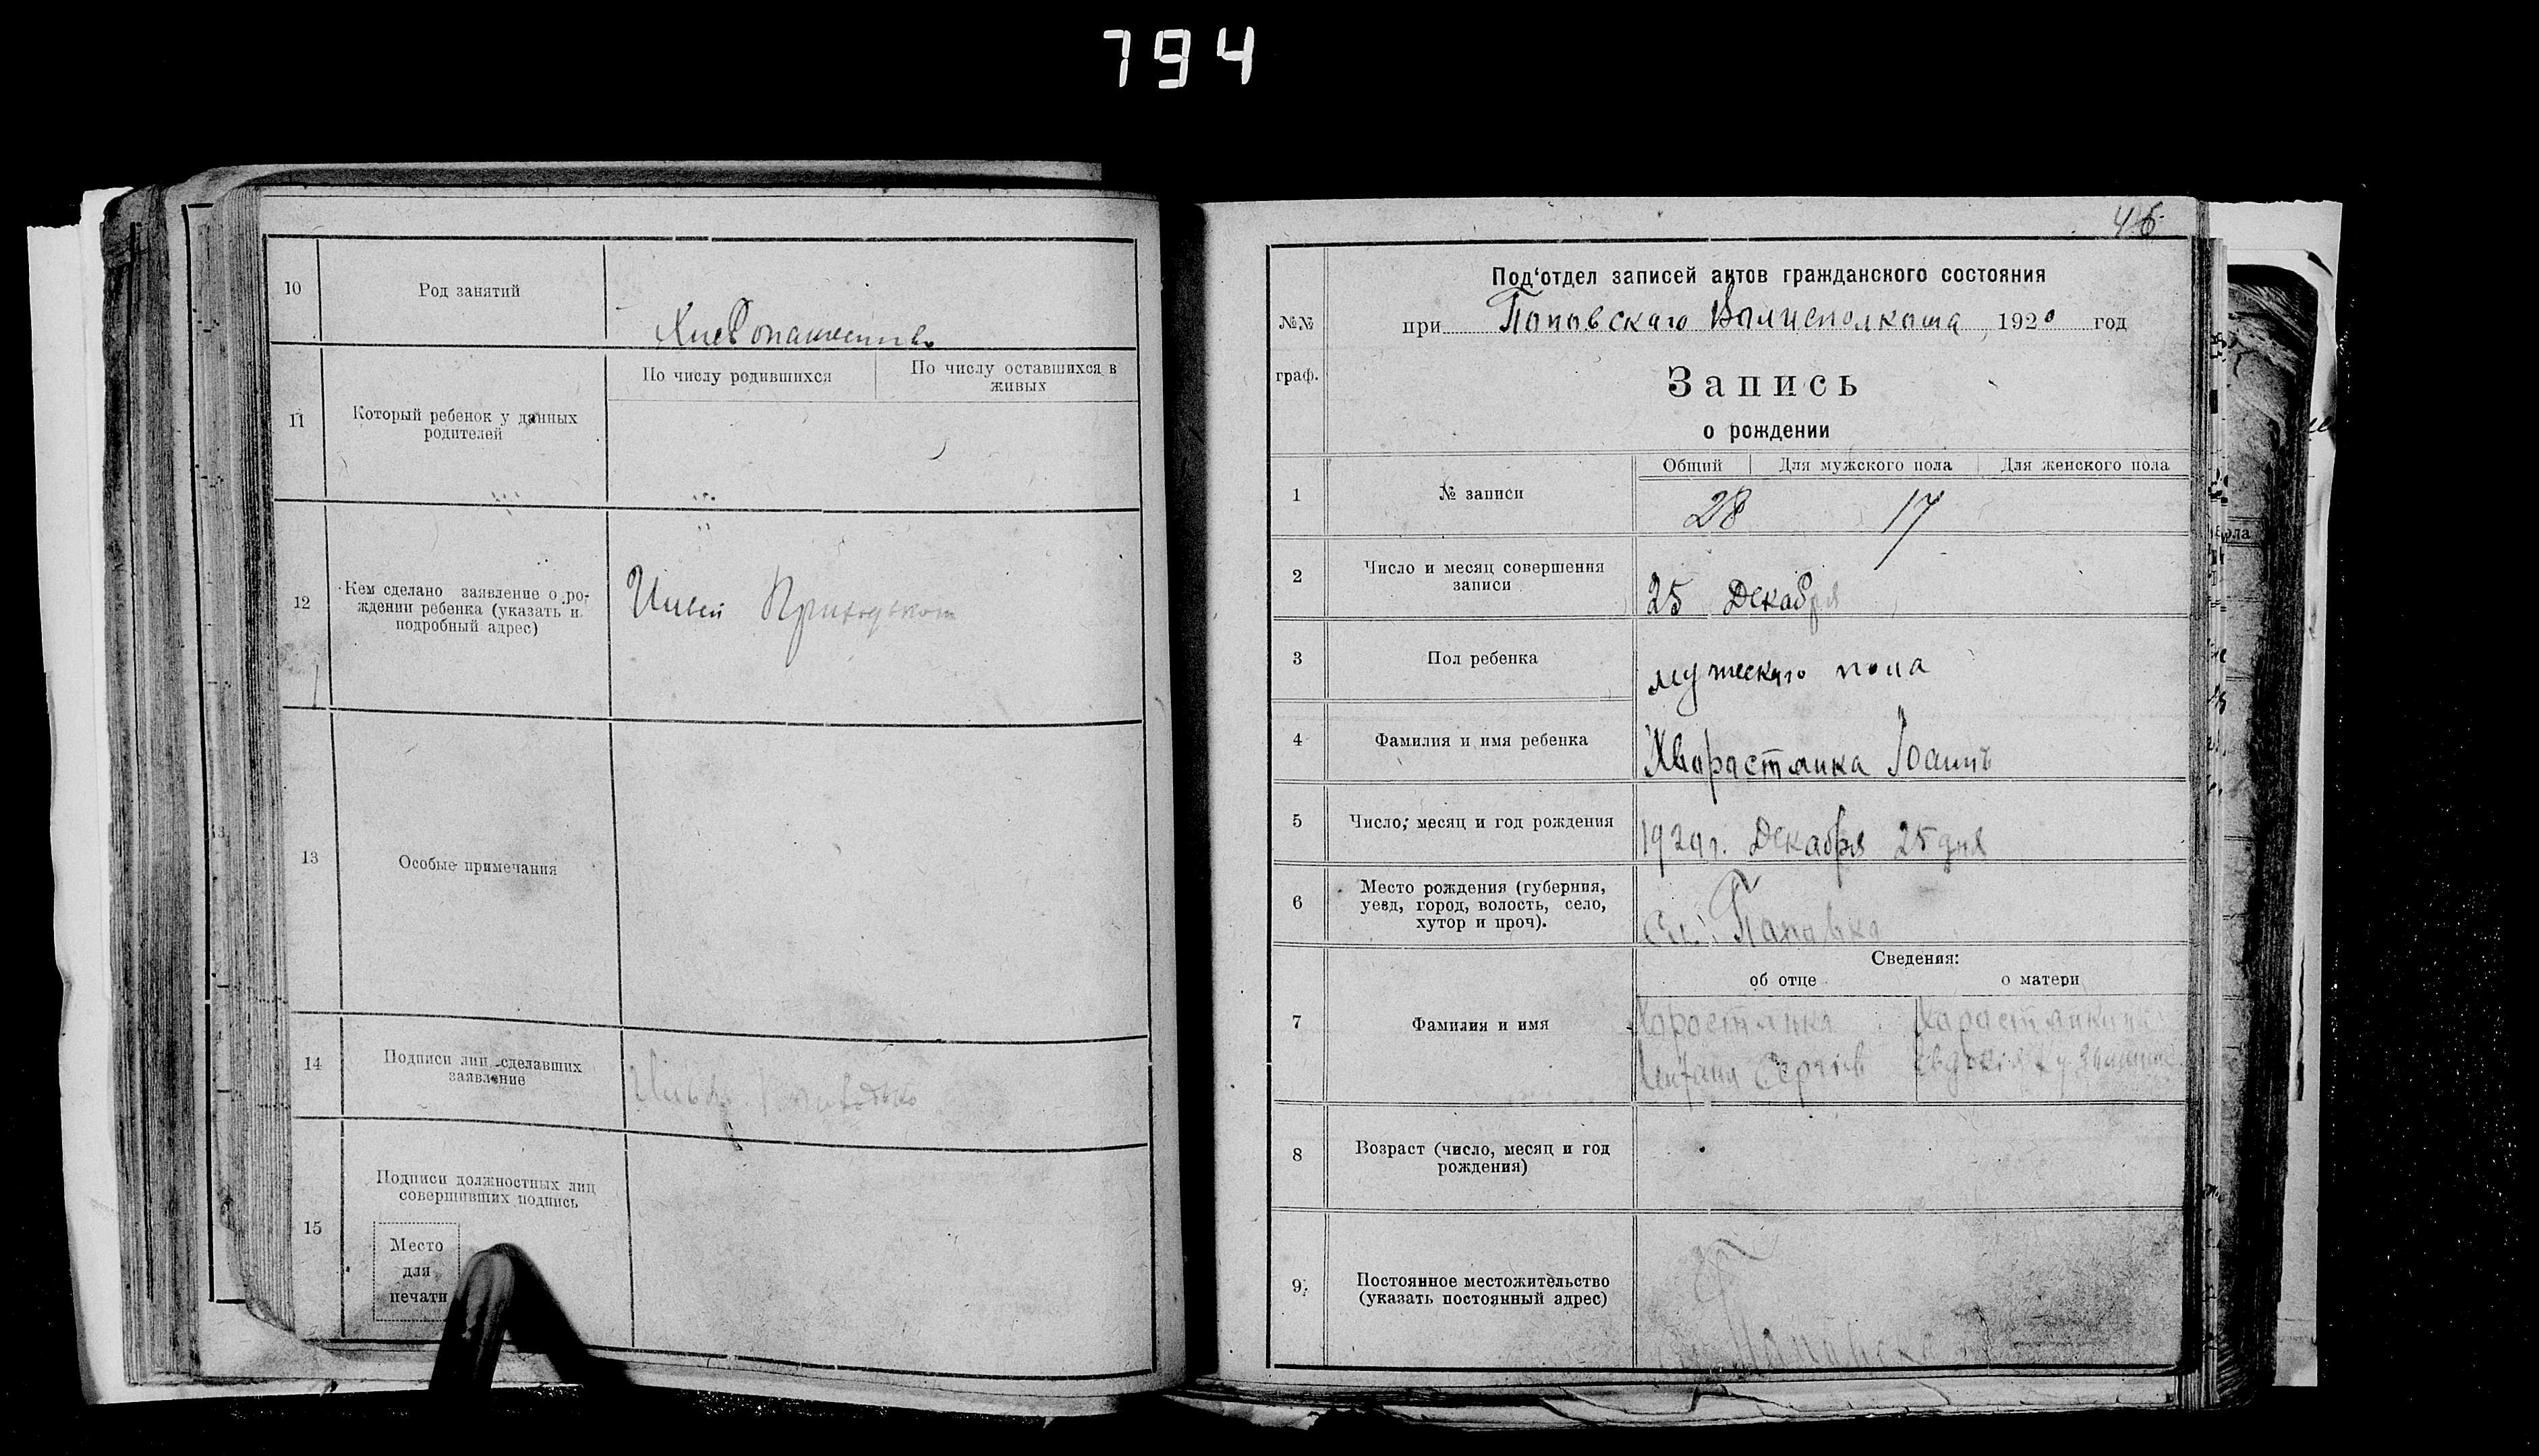 794
10
Род занятий
Хлебопашество
11
Который ребенок у данных
родителей
По числу родившихся
По числу оставшихся в
живых
12
Кем сделано заявление о ро-
ждении ребенка (указать и
подробный адрес)
Ильей Приходьком
13
Особые примечания
14
Подписи лиц сделавших
заявление
Илья
15
Подписи должностных лиц
совершивших подпись
Место
для
печати
46
№№
граф.
Под‘отдел записей актов гражданского состояния
при Поповскаго Волисполкома 1920 год
Запись
о рождении
1
№ записи
Общий
Для мужского пола
Для женского пола
28
17
2
Число и месяц совершения
записи
25 Декабря
3
Пол ребенка
мужескаго пола
4
Фамилия и имя ребенка
Хворостянка Іоаннъ
5
Число, месяц и год рождения
1920 г. Декабря 25 дня
6
Место рождения (губерния,
уезд, город, волость, село,
хутор и проч).
Сл. Поповка
Сведения:
об отце
о матери
7
Фамилия и имя
Хоростянка
Сергіев
Хоростянкина
Евдокія
8
Возраст (число, месяц и год
рождения)
9.
Постоянное местожительство
(указать постоянный адрес)